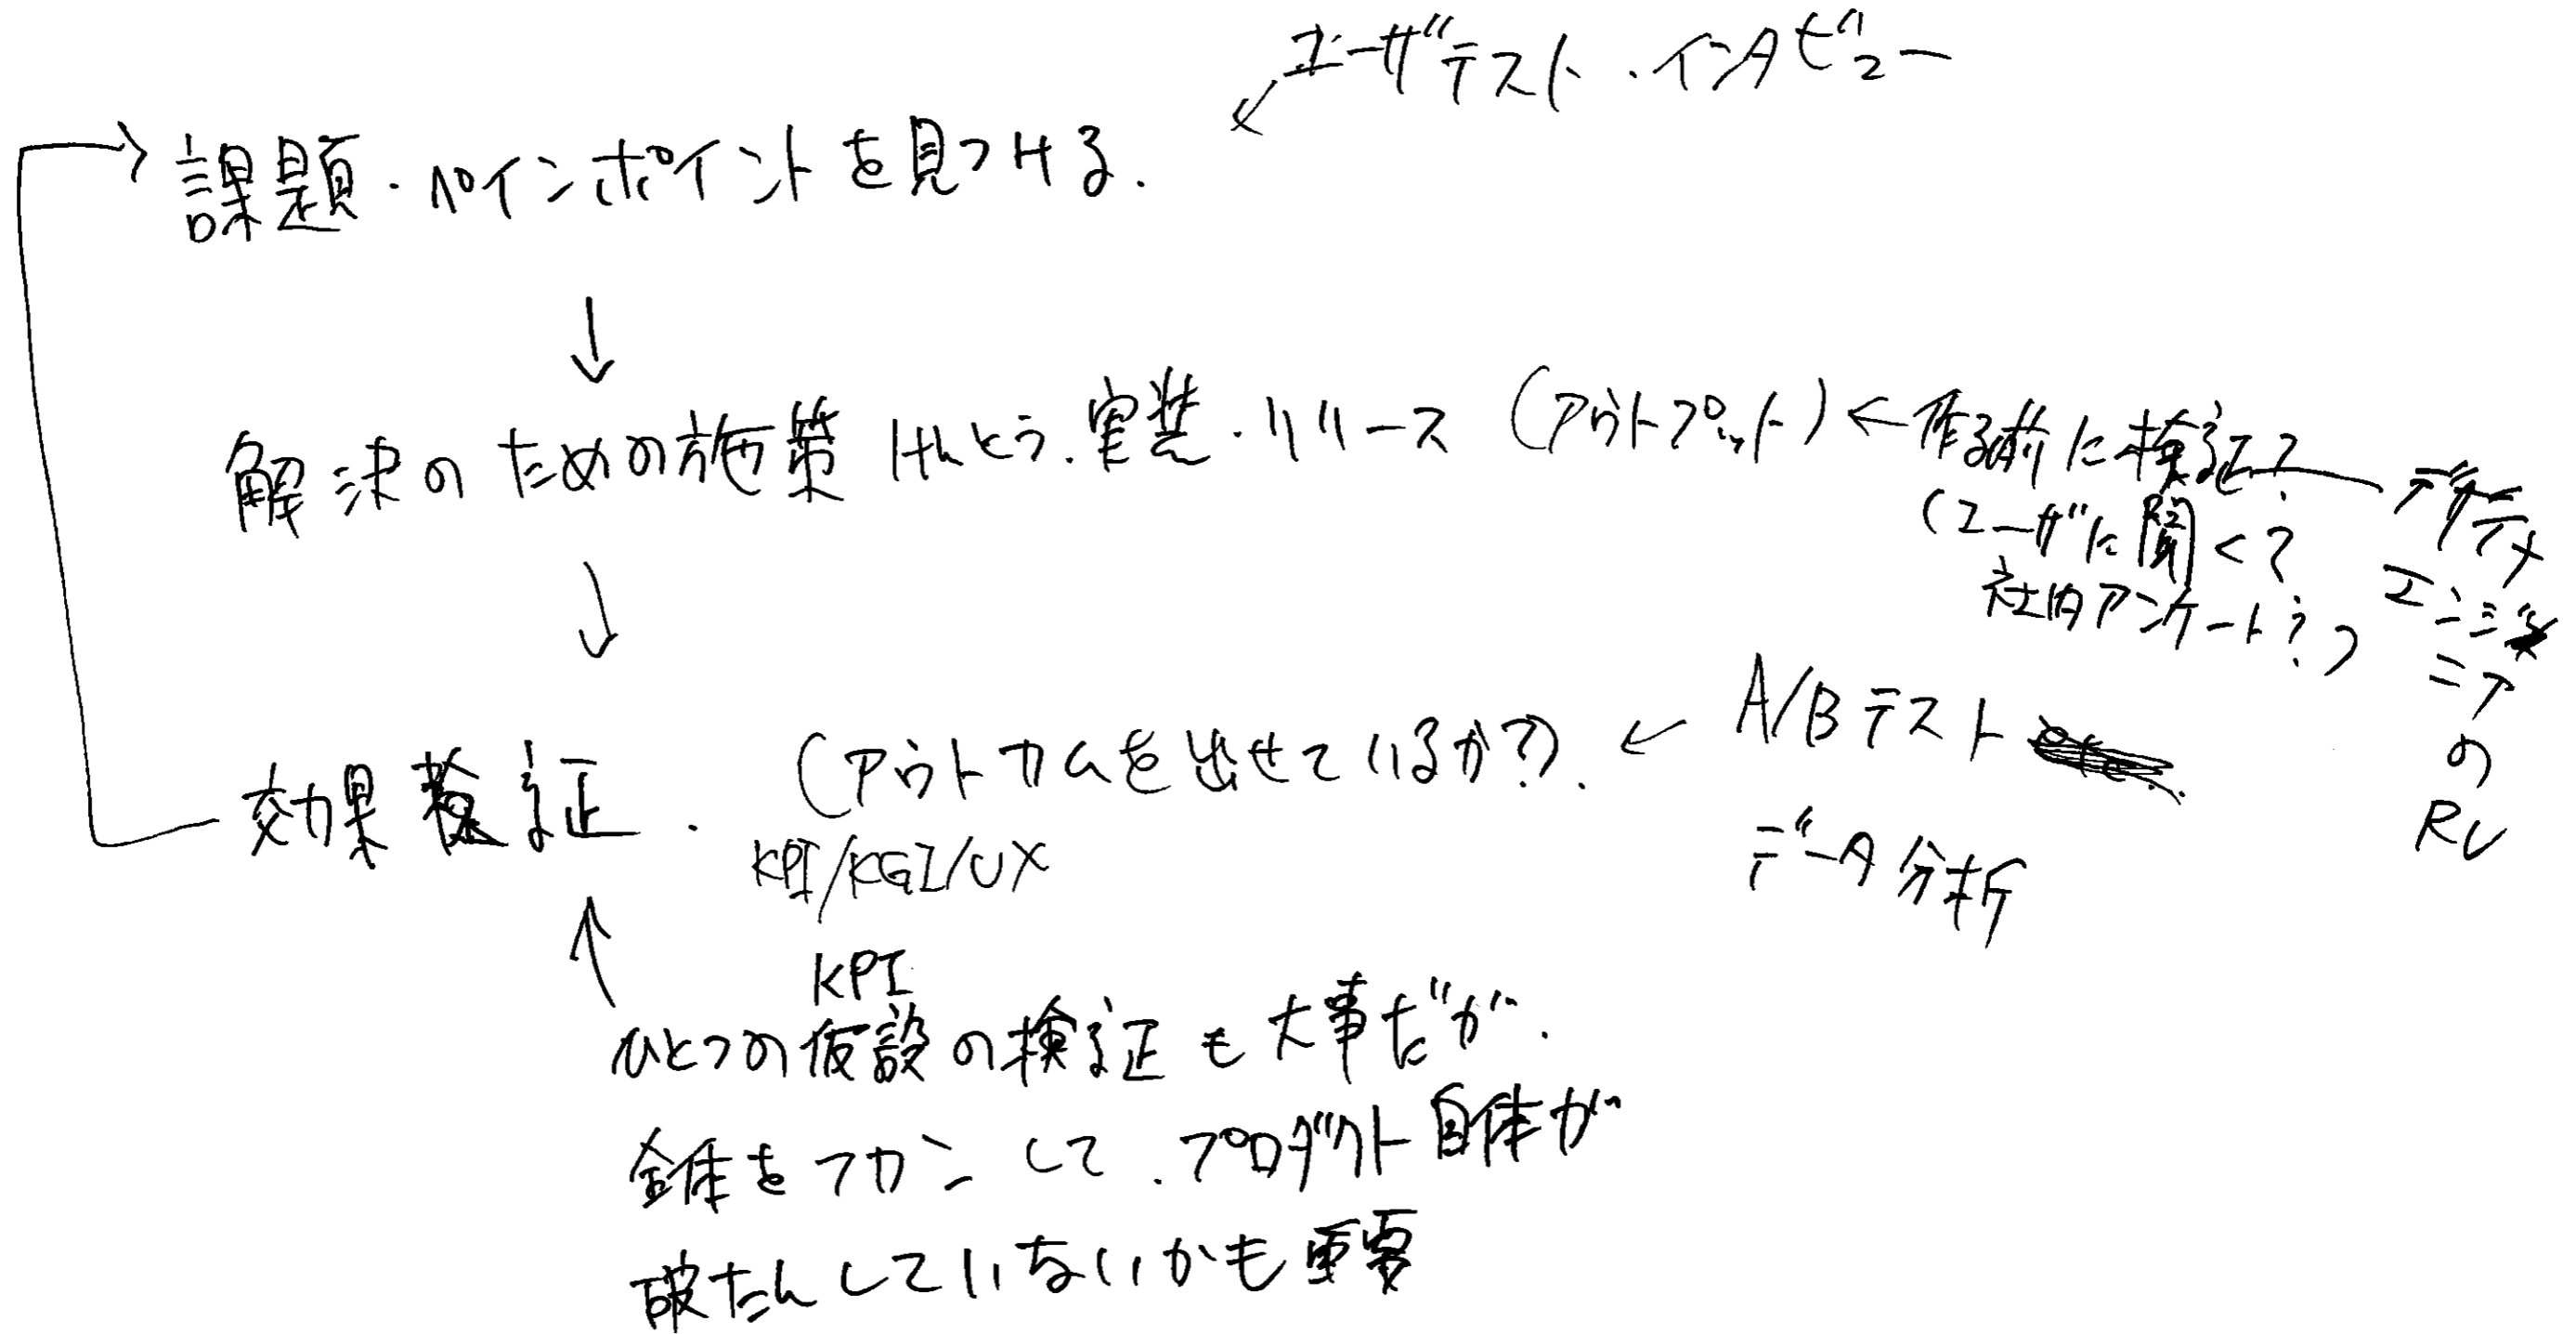 ユーザテスト・インタビュー
課題・ペインポイントを見つける.
解決のための施策けんとう.実装・リリース (アウトプット)
作る前に検証?
(ユーザに聞く?
社内アンケート?)
デザイナ
エンジ
ニア
の
RV
効果検証. (アウトカムを出せているか?).
KPI/KGI/UX
A/Bテスト
データ分析
KPI
ひとつの仮設の検証も大事だが.
全体をフカンして.プロダクト自体が
破たんしていないかも重要